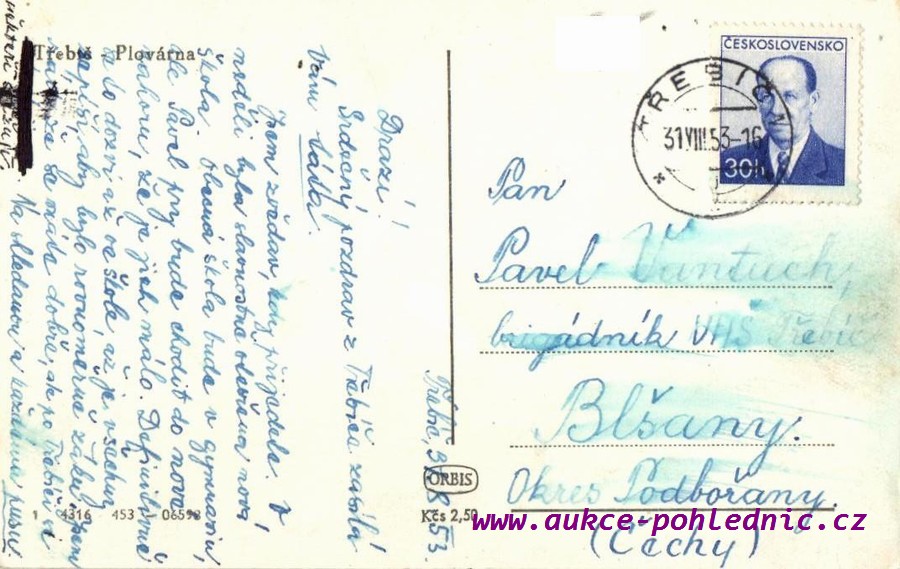 Třebíč - Plovárna
ČESKOSLOVENSKO
30h
TŘEBÍČ
31.VIII.53-16
Pan
Pavel Vantuch,
brigádník VHS Třebíč
Blšany.
Okres Podbořany.
(Čechy)
Třebíč, 53.
Drazí!
Srdečný pozdrav z Třebíče zasílá
Vám táta.
Jsem zvědav, kdy přijedete. V
neděli byla slavnostně otevřena nová
škola. Obecná škola bude v gymnasiu,
ale Pavel prý bude chodit do nové
nahoru, že je jich málo. Definitivně
se to dozví až ve škole, až je všechny
sepíší, aby bylo rovnoměrné
se máte dobře, ale po Třebíči
Na shledanou a každému pusu.
někteří
ORBIS
Kčs 2,50
1 4316 453 - 06593
www.aukce-pohlednic.cz